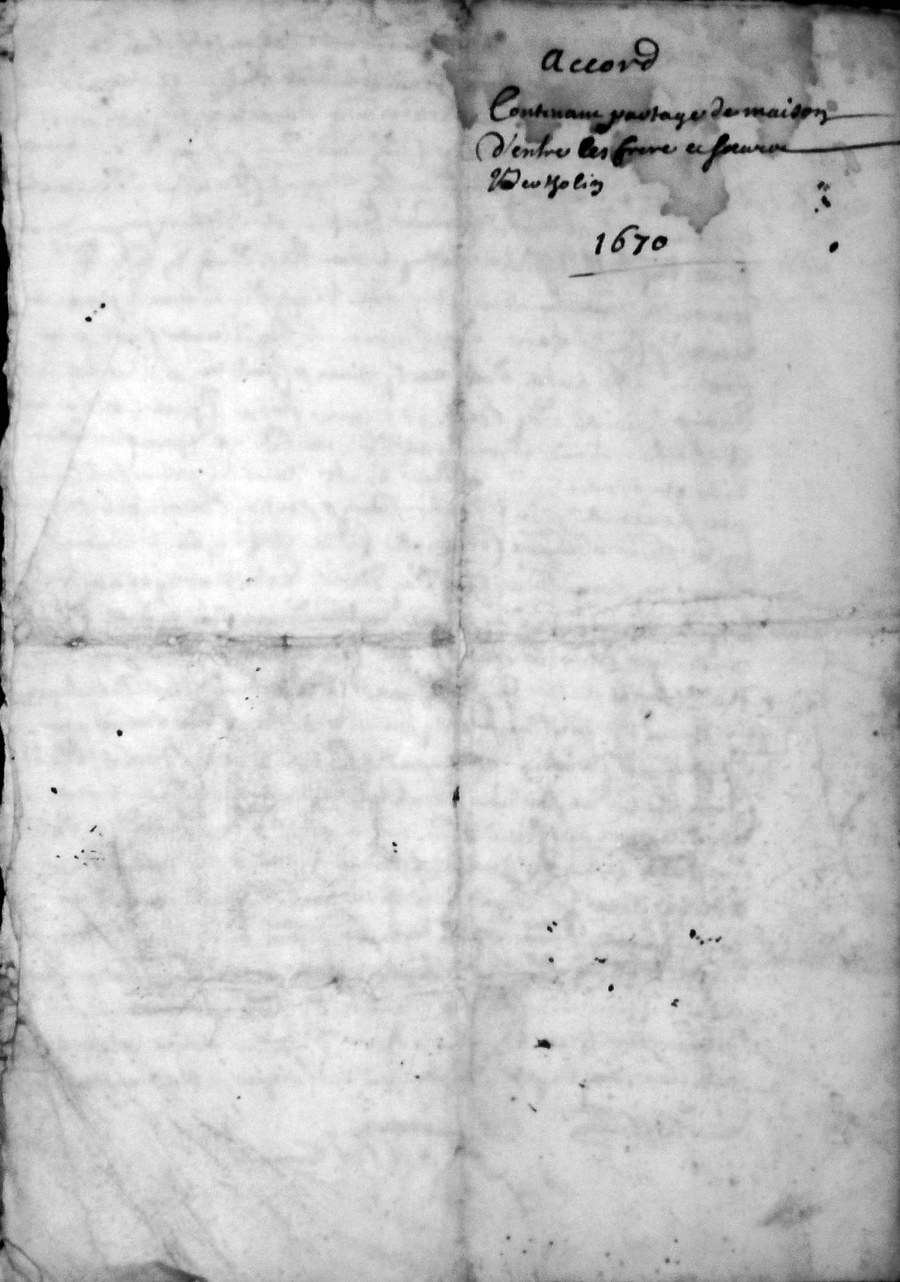 Accord
Contenant partage de maison
d'entre les frere et soeurs
Bertholin
1670